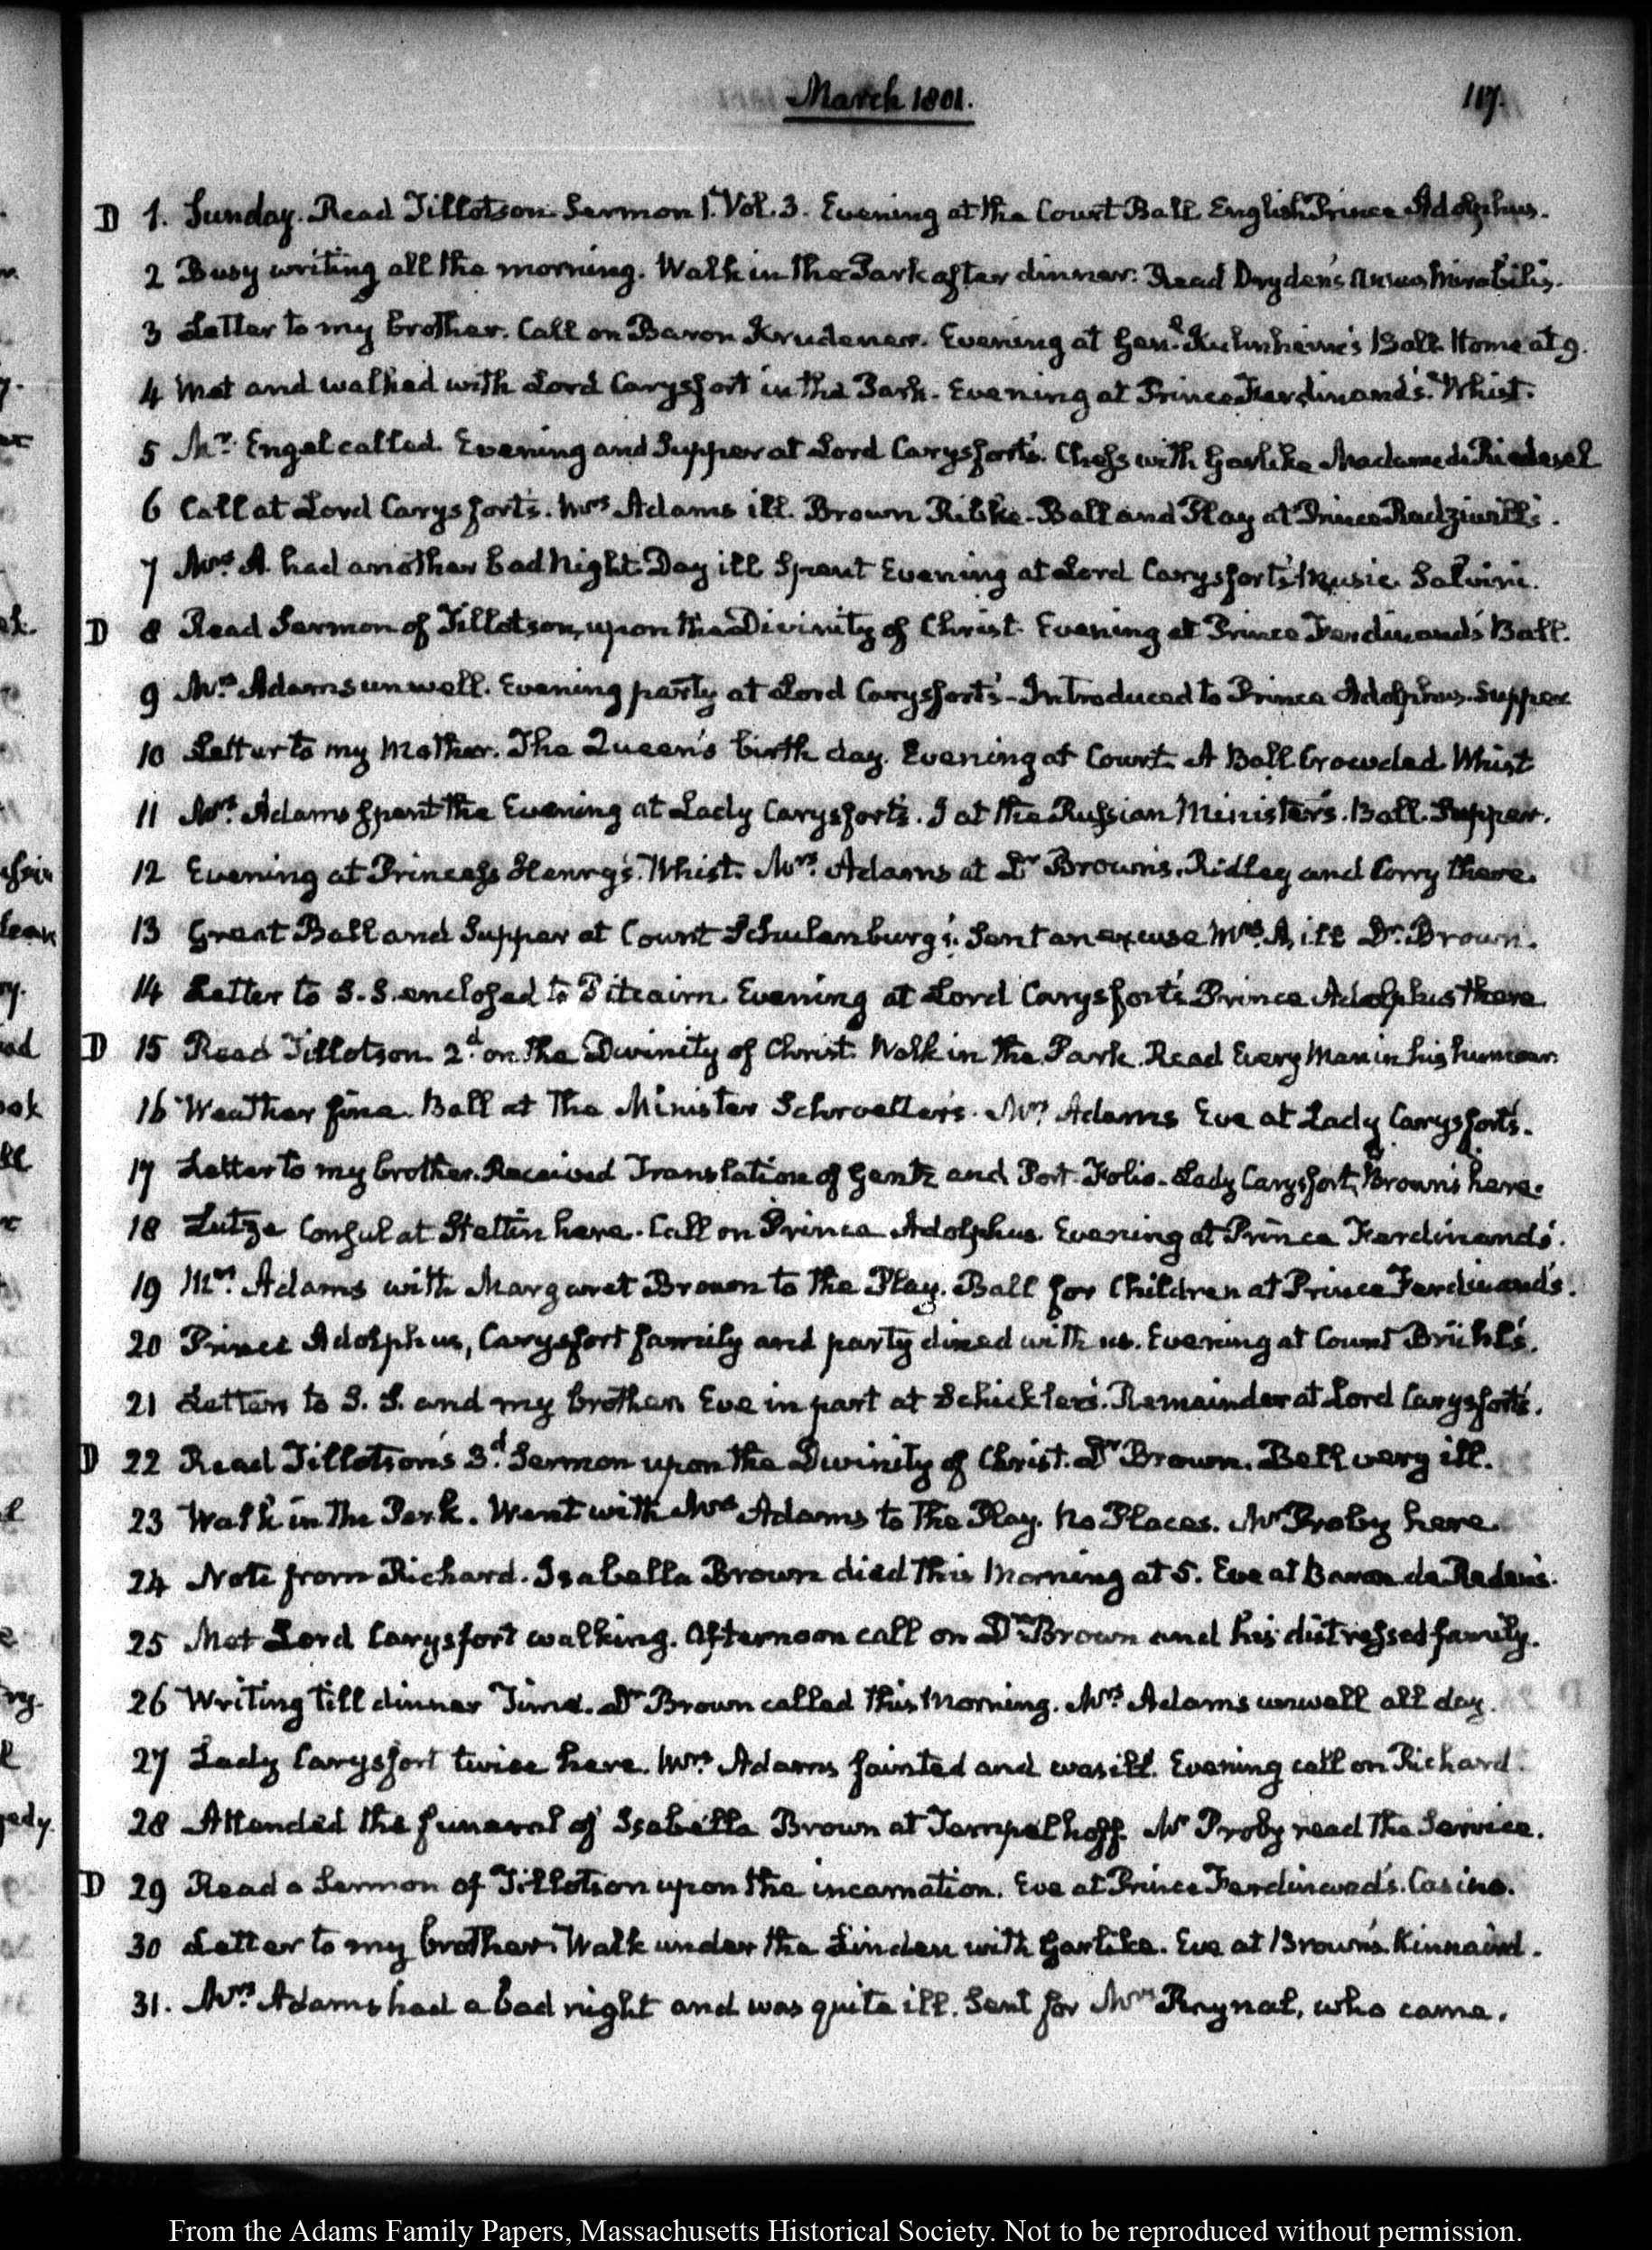 March 1801.
117.
D 1. Sunday. Read Tillotson Sermon 1. Vol. 3. Evening at the Court Ball English Prince Adolphus.
2 Busy writing all the morning. Walk in the Park after dinner. Read Dryden's Annus Mirabilis.
3 Letter to my brother. Call on Baron Krudener. Evening at Genl. Kuhnheim's Ball. Home at 9.
4 Met and walked with Lord Carysfort in the Park. Evening at Prince Ferdinand's. Whist.
5 Mr. Engel called. Evening and Supper at Lord Carysfort's. Chess with Garlike Madame de Riedesel
6 Call at Lord Carysfort's. Mrs Adams ill. Brown Ribke. Ball and Play at Prince Radziwill's.
7 Mrs. A. had another bad night. Day ill Spent Evening at Lord Carysfort's. Music. Salvini.
D 8 Read Sermon of Tillotson, upon the Divinity of Christ. Evening at Prince Ferdinand's Ball.
9 Mrs. Adams unwell. Evening party at Lord Carysfort's - Introduced to Prince Adolphus. Supper
10 Letter to my Mother. The Queen's birth day. Evening at Court. A Ball Crowded Whist
11 Mrs. Adams spent the Evening at Lady Carysfort's. I at the Russian Minister's. Ball. Supper.
12 Evening at Princess Henry's. Whist. Mrs. Adams at Dr Brown's. Ridley and Corry there.
13 Great Ball and Supper at Count Schulenburg's. Sent an excuse Mrs. A, ill Dr. Brown.
14 Letter to S. S. enclosed to Pitcairn. Evening at Lord Carysfort's Prince Adolphus there
D 15 Read Tillotson. 2d. on the Divinity of Christ. Walk in the Park. Read Every Man in his humour.
16 Weather fine. Ball at the Minister Schroetter's. Mrs Adams Eve at Lady Carysfort's.
17 Letter to my brother. Received Translation of Gentz and Port-Folio. Lady Carysfort, Brown's here.
18 Lutze Consul at Stettin here. Call on Prince Adolphus. Evening at Prince Ferdinand's.
19 Mrs. Adams with Margaret Brown to the Play. Ball for Children at Prince Ferdinand's.
20 Prince Adolphus, Carysfort family and party dined with us. Evening at Count Brühl's.
21 Letters to S. S. and my brother. Eve in part at Schickler's. Remainder at Lord Carysfort's.
D 22 Read Tillotson's 3d. Sermon upon the Divinity of Christ. Dr Brown. Bell very ill.
23 Walk in the Park. Went with Mrs Adams to the Play. No Places. Mr Proby here.
24 Note from Richard. Isabella Brown died this Morning at 5. Eve at Baron de Reden's.
25 Met Lord Carysfort walking. Afternoon call on Dr Brown and his distressed family.
26 Writing till dinner Time. Dr Brown called this Morning. Mrs Adams unwell all day.
27 Lady Carysfort twice here. Mrs. Adams fainted and was ill. Evening call on Richard.
28 Attended the funeral of Isabella Brown at Tempelhoff. Mr Proby read the Service.
D 29 Read a Sermon of Tillotson upon the incarnation. Eve at Prince Ferdinand's. Casino.
30 Letter to my brother. Walk under the Linden with Garlike. Eve at Brown's. Kinnaird.
31. Mrs. Adams had a bad night and was quite ill. Sent for Mrs Raynal, who came.
From the Adams Family Papers, Massachusetts Historical Society. Not to be reproduced without permission.